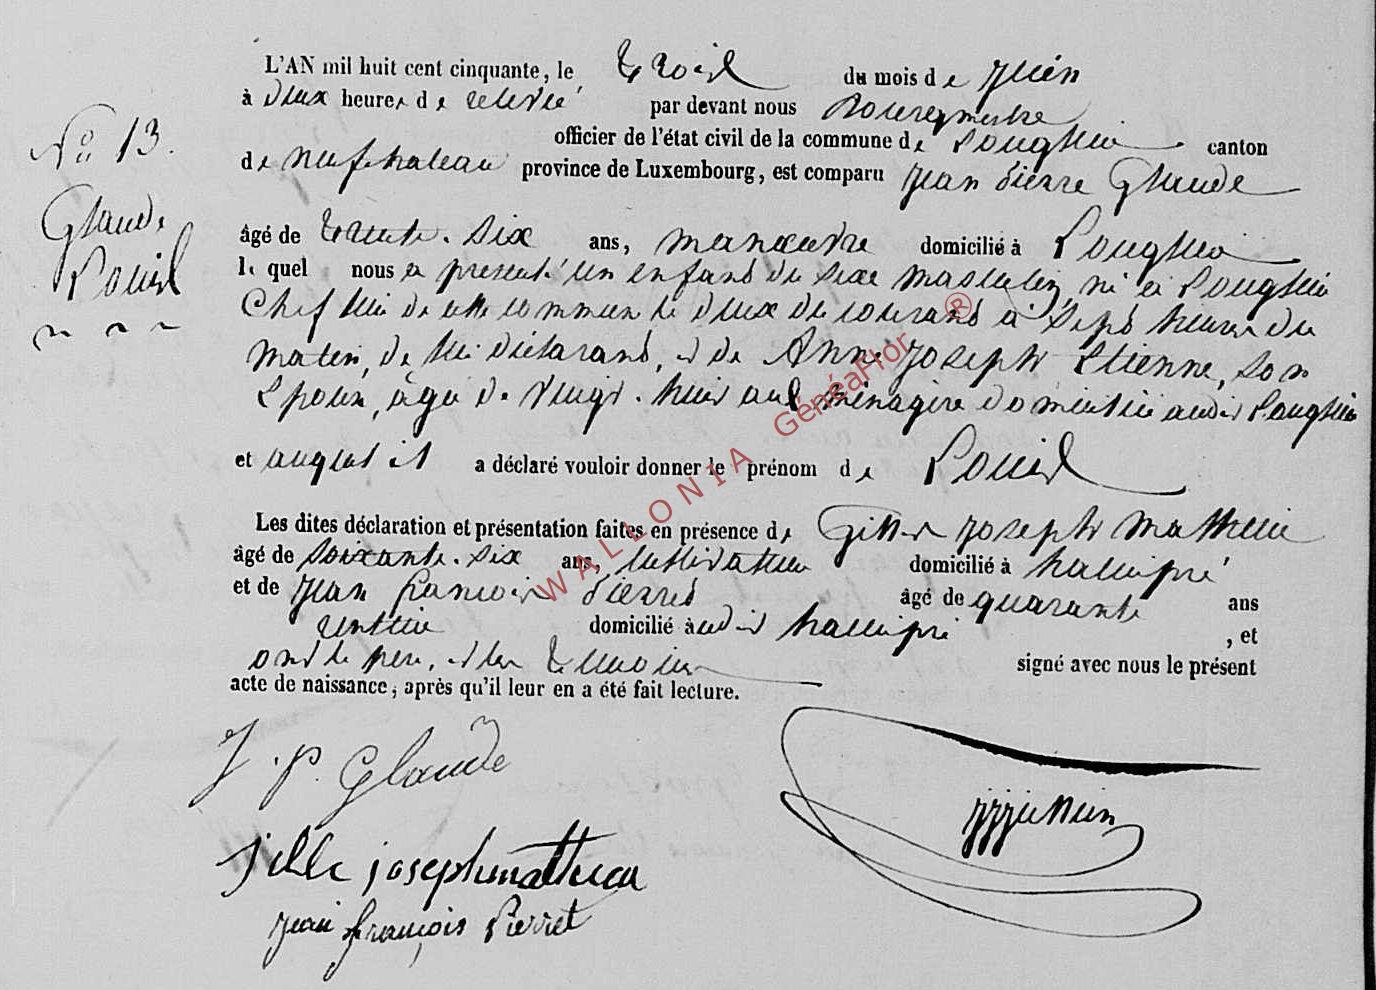 L'AN mil huit cent cinquante, le trois du mois de juin
à deux heures de relevé par devant nous Bourgmestre
officier de l'état civil de la commune de Louglier canton
de neufchateau province de Luxembourg, est comparu Jean Pierre Glaude
No 13.
Glaude
Louis
âgé de trente-six ans, manœuvre domicilié à Louglier
le quel nous a présenté un enfant du sexe masculin, né à Louglier
Chef lieu de cette commune le deux du courant à sept heures du
matin, de lui déclarant, et de Anne Joseph Etienne, son
Epouse, âgée de vingt-huit ans ménagère domiciliée audit Louglier
et auquel il a déclaré vouloir donner le prénom de Louis
Les dites déclaration et présentation faites en présence de Gille Joseph Mathieu
âgé de soixante-six ans, cultivateur domicilié à hamipré
et de Jean François Pierret âgé de quarante ans
rentier domicilié audit hamipré , et
ont le père, et les témoins signé avec nous le présent
acte de naissance, après qu'il leur en a été fait lecture.
J. P. Glaude
Jille joseph mathieu
jean françois Pierret
WALLONIA GénéaFlor ®